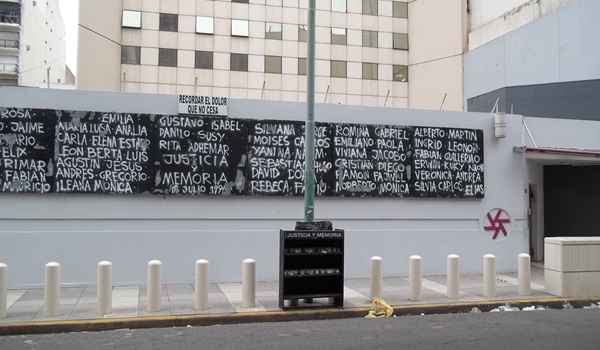 RECORDAR EL DOLOR
QUE NO CESA
ROSA
JAIME
FELIX
FABIAN
MAURICIO
EMILIA
MARIA LUISA ANALIA
CARLA ELENA ESTER
LEON BERTA LUIS
AGUSTIN JESUS
ANDRES GREGORIO
ILEANA MONICA
GUSTAVO ISABEL
DANILO SUSY
RITA ADREMAR
JUSTICIA
Y
MEMORIA
18 JULIO 1994
SILVANA JORGE
MOISES CARLOS
SEBASTIAN
DAVID
REBECA
ROMINA GABRIEL
EMILIANO PAOLA
VIVIANA JACOBO
CRISTIAN DIEGO
RAMON FAJWEL
NORBERTO MONICA
ALBERTO MARTIN
INGRID LEONOR
FABIAN GUILLERMO
ERWIN
VERONICA ANDREA
SILVIA CARLOS ELIAS
JUSTICIA Y MEMORIA